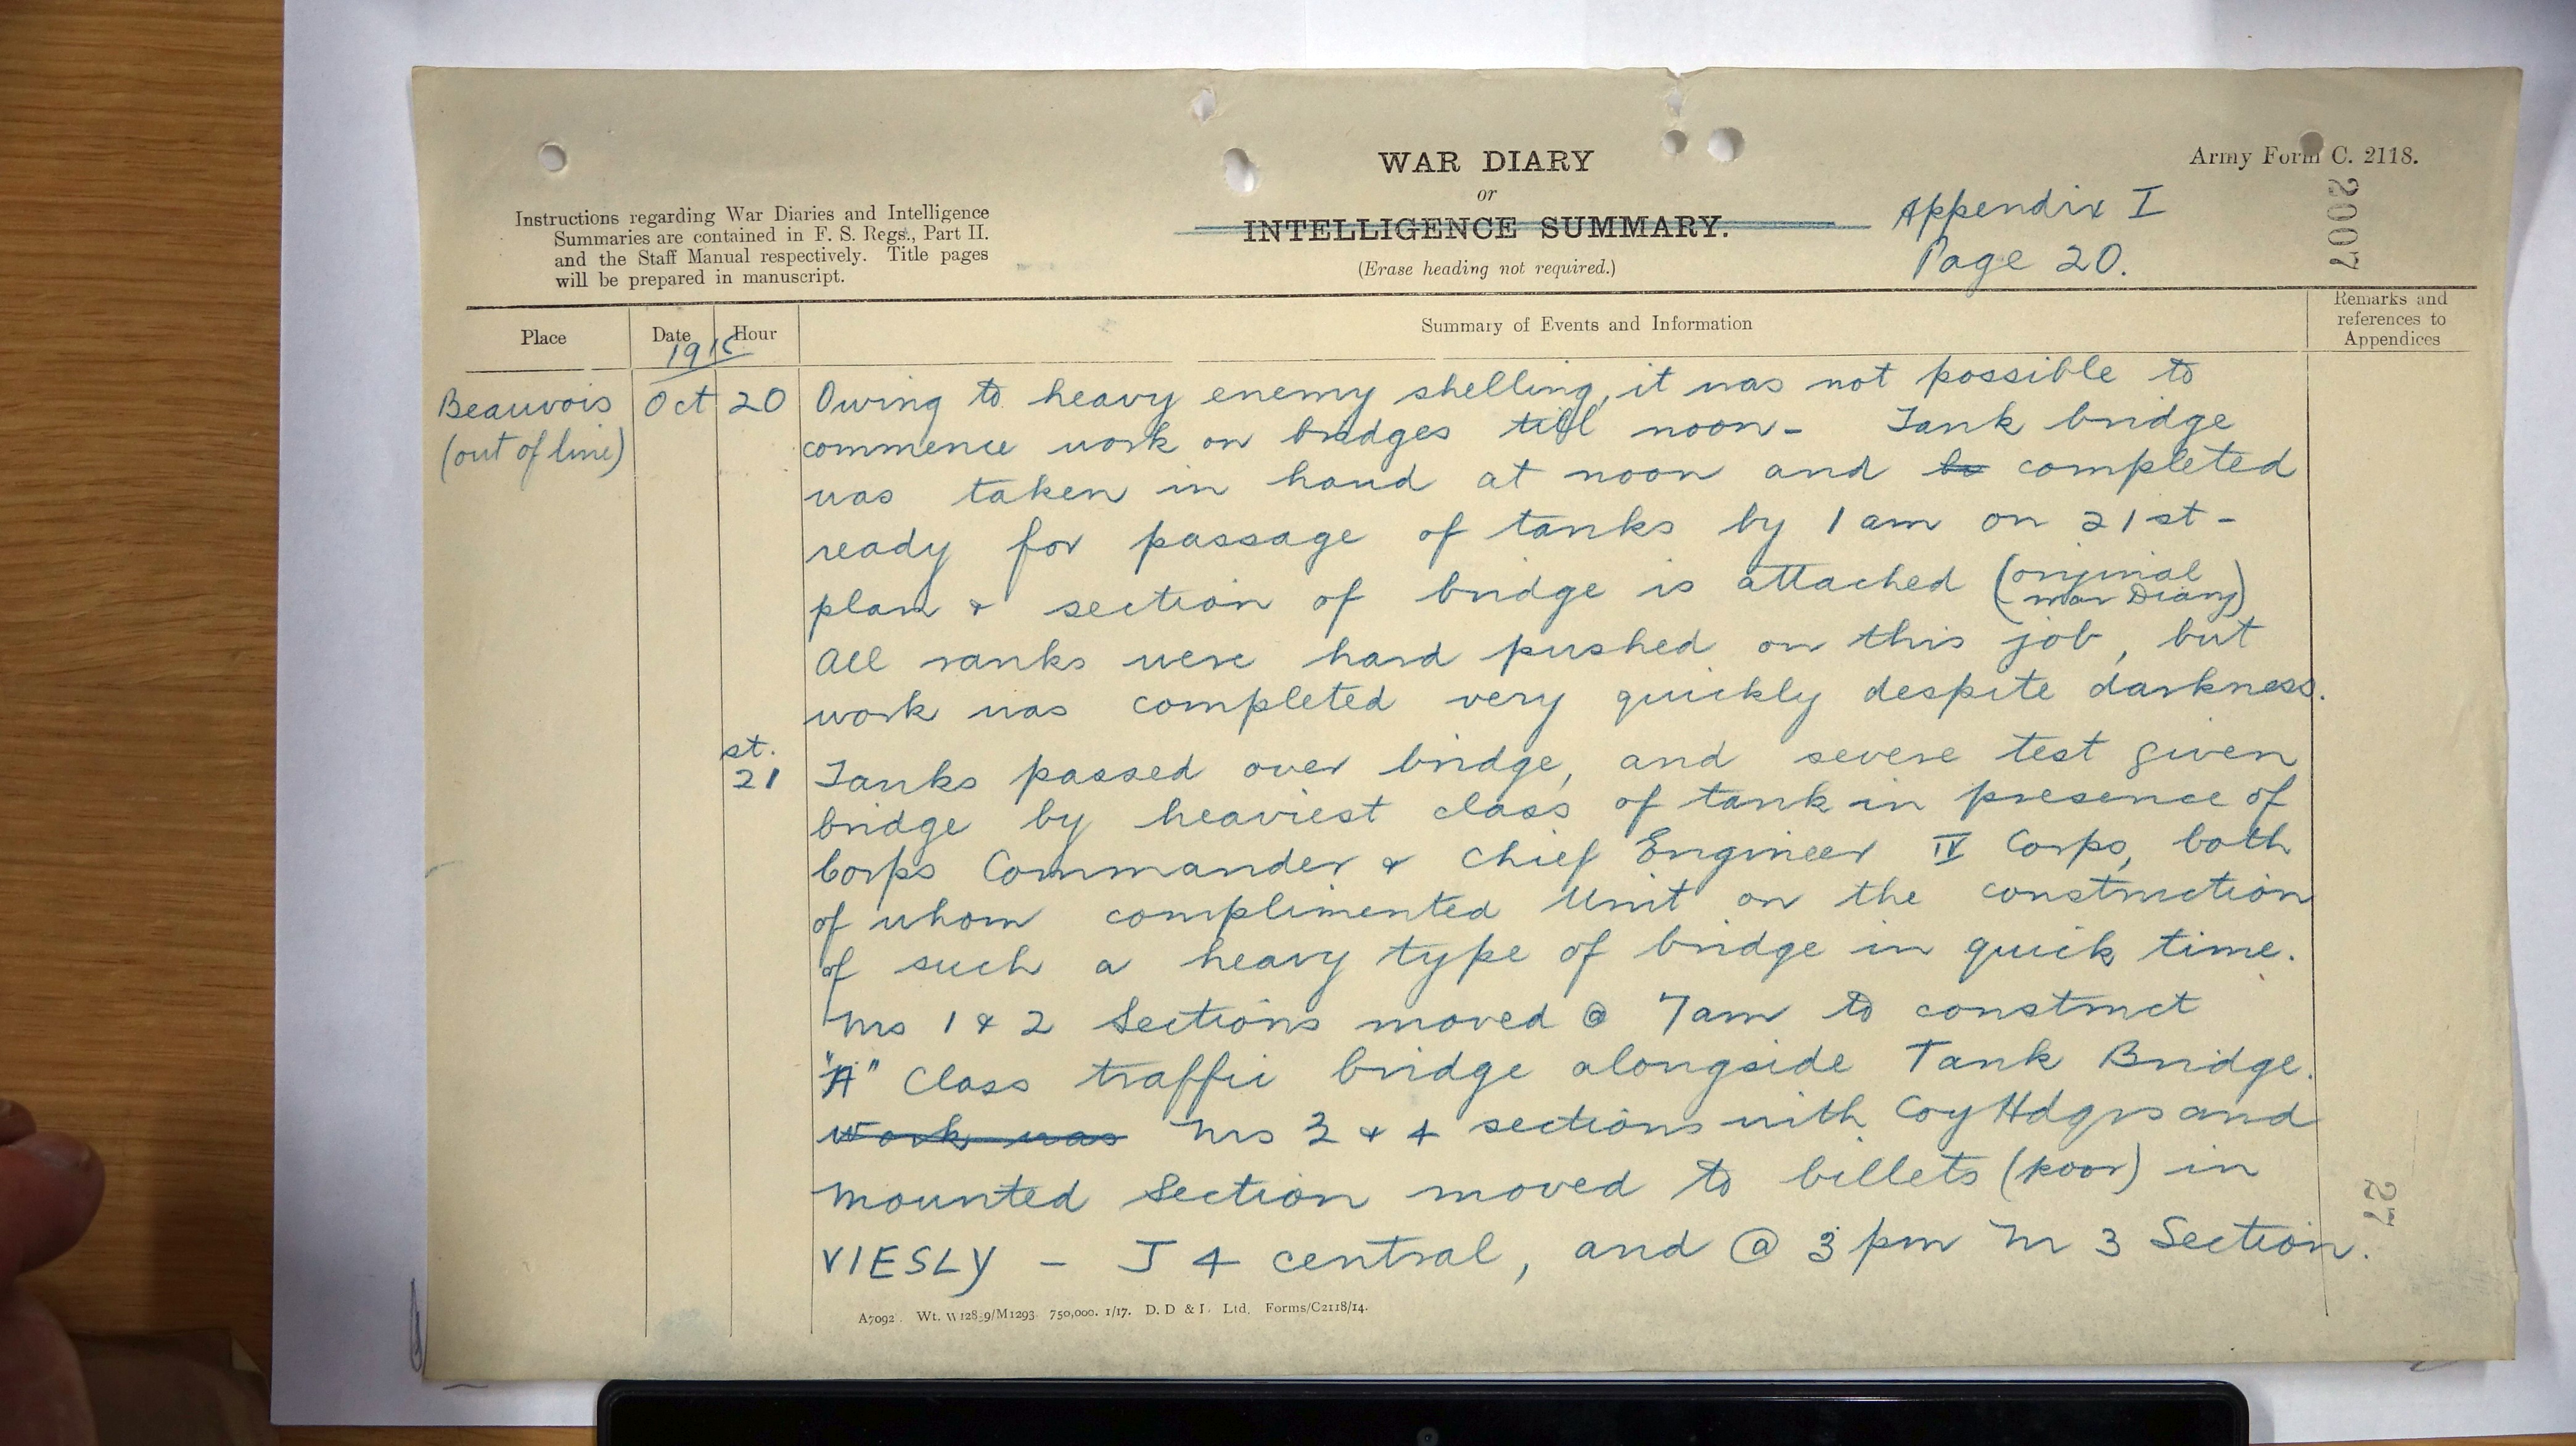 WAR DIARY
or
INTELLIGENCE SUMMARY.
(Erase heading not required.)
Army Form C. 2118.
Appendix I
Page 20.
2007
Instructions regarding War Diaries and Intelligence
Summaries are contained in F. S. Regs., Part II.
and the Staff Manual respectively. Title pages
will be prepared in manuscript.
Place Date Hour Summary of Events and Information Remarks and
references to
Appendices
Beauvois Oct 20 Owing to heavy enemy shelling, it was not possible to
(out of line) commence work on bridges till noon - Tank bridge
was taken in hand at noon and be completed
ready for passage of tanks by 1 am on 21st -
plan & section of bridge is attached (original
war Diary)
All ranks were hard pushed on this job, but
work was completed very quickly despite darkness.
21st. Tanks passed over bridge, and severe test given
bridge by heaviest class of tank in presence of
Corps Commander & Chief Engineer IV Corps, both
of whom complimented Unit on the construction
of such a heavy type of bridge in quick time.
Nrs 1 & 2 Sections moved @ 7am to construct
"A" Class traffic bridge alongside Tank Bridge.
Work was Nrs 3 & 4 sections with Coy Hdqrs and
mounted Section moved to billets (poor) in
VIESLY - J 4 central, and @ 3 pm Nr 3 Section.
27
750,000. 1/17. D. D & L. Ltd. Forms/C2118/14.